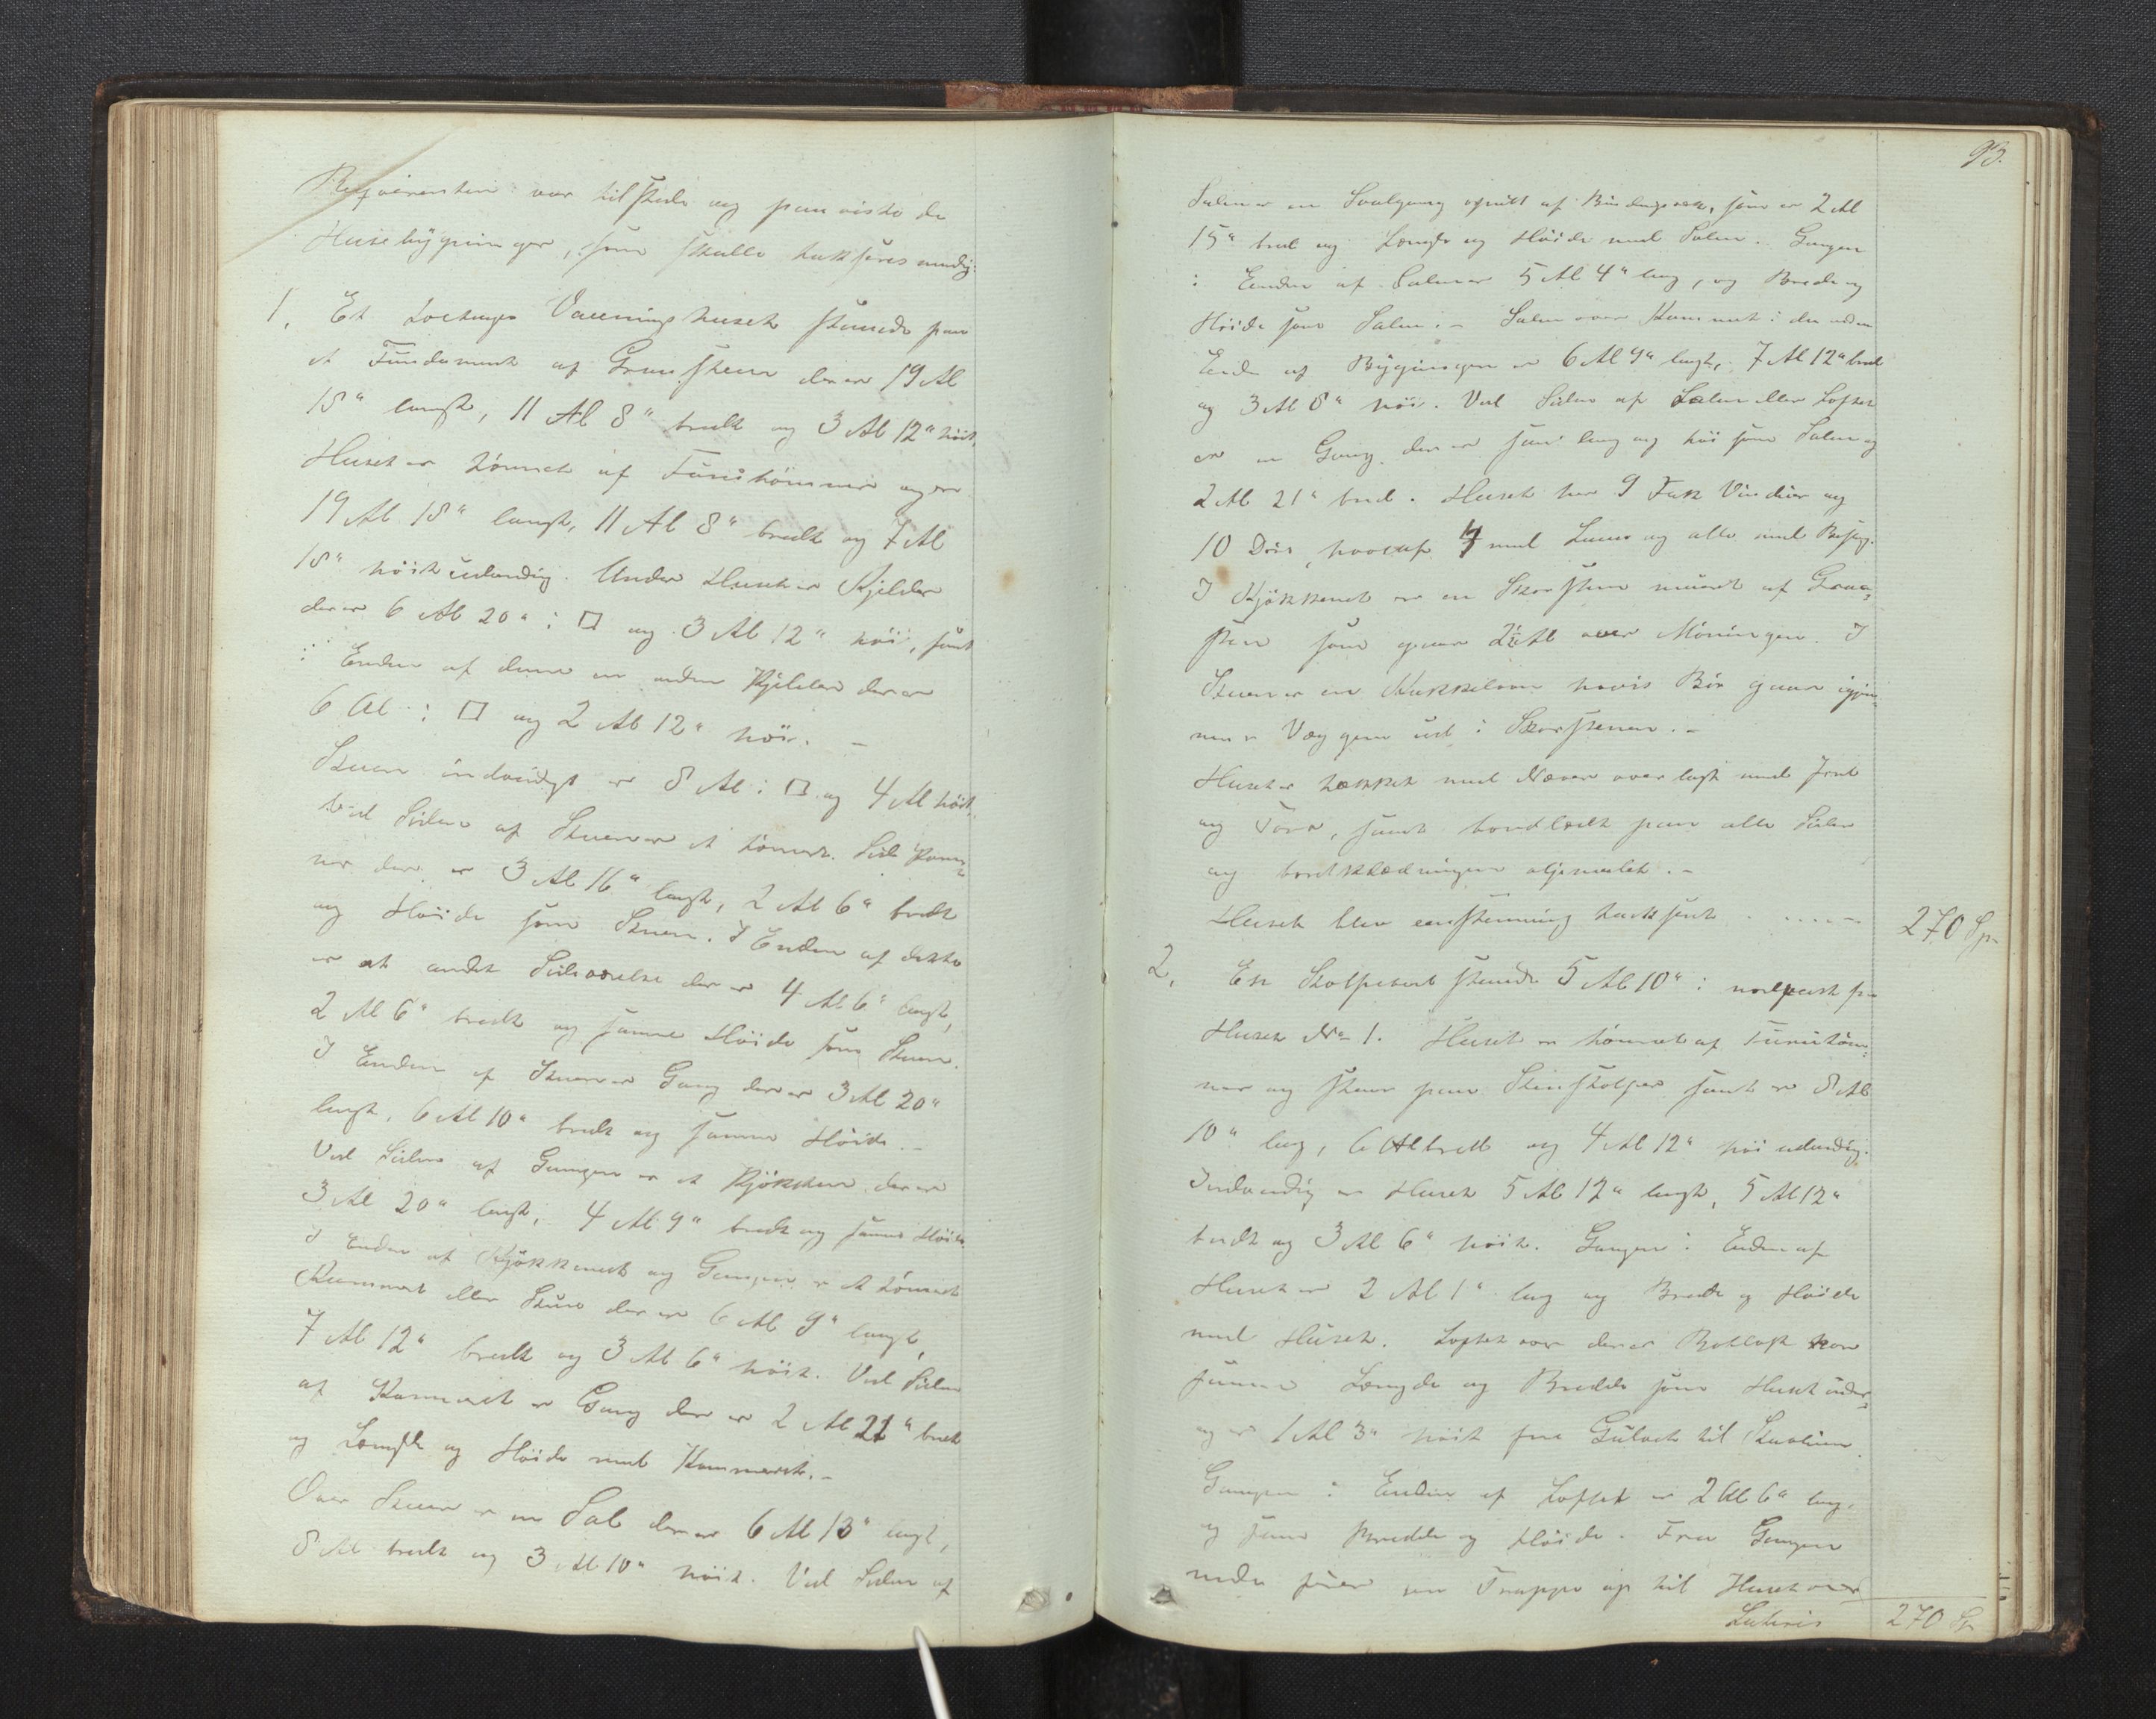 Reqvirenten var tilstede og paaviste de
Huusebygninger, som skulle taxseres nemlig:
1, Et Loetages Vaaningshuset staaende paa
et Fundament af Graasteen der er 19 Al
18" langt, 11 Al 8" bredt og 3 Al 12" höit.
Huset er tömret af Furutömmer og er
19 Al 18" langt, 11 Al 8" bredt og 7 Al
18" höit udvendig. Under Huset er Kjelder
der er 6 Al 20" i □ og 3 Al 12" höi, samt
i Enden af denne en anden Kjelder der er
6 Al i □ og 2 Al 12" höi. –
Stuen indvendigt er 8 Al i □ og 4 Al höit.
Ved Siden af Stuen er et tömret Side Kam¬
mer der er 3 Al 16" langt, 2 Al 6" bredt
og Höide som Stuen. I Enden af dette
er et andet Sideværelse der er 4 Al 6" langt,
2 Al 6" bredt og samme Höide som Stuen.
I Enden af Stuen er Gang der er 3 Al 20"
langt, 6 Al 10" bredt og samme Höide. –
Ved Siden af Gangen er et Kjökken der er
3 Al 20" langt, 4 Al 9" bredt og samme Höide.
I Enden af Kjökkenet og Gangen er et tömret
Kammer eller Stue der er 6 Al 9" langt,
7 Al 12" bredt og 3 Al 6" höit. Ved Siden
af Kammeret er Gang der er 2 Al 21" bredt
og Længde og Höide med Kammeret. –
Over Stuen er en Sal der er 6 Al 13" langt,
8 Al bredt og 3 Al 10" höit. Ved Siden af
93.
Salen er en Svalgang opsatt af Bindingsværk, som er 2 Al
15" bred og Længde og Höide med Salen. Gangen
i Enden af Salen er 5 Al 4" lang, og Brede og
Höide som Salen. – Salen over Kammeret i den anden
Ende af Bygningen er 6 Al 9" langt, 7 Al 12" bred
og 3 Al 8" höi. Ved Siden af Salen eller Loftet
er en Gang der er saa lang og höi som Salen og
2 Al 21" bred. Huset har 9 Fak Vinduer og
10 Döre, hvoraf 7 med Laase og alle med Beslag.
I Kjökkenet er en Skorsteen muret af Graa¬
steen som gaar 2½ Al over Möningen. I
Stuen er en Kakkelovn hvis Rör gaar igjen¬
nem Væggen ud i Skorstenen. –
Huset er tækket med Næver overlagt med Jord
og Törv, samt bordklædt paa alle Sider
og bordklædningen oljemalet. –
Huset blev eenstemmig taxseret - - - - - 270 Sp
2, En Stolpebod staaende 5 Al 10" i nordvest fra
Huset No 1. Huset er tömret af Furutöm¬
mer og staar paa Steinstolper samt er 8 Al
10" lang, 6 Al bredt og 4 Al 12" höi udvendig.
Indvendig er Huset 5 Al 12" langt, 5 Al 12"
bredt og 3 Al 6" höit. Gangen i Enden af
Huset er 2 Al 1" lang og Brede og Höide
med Huset. Loftet over der er har
samme Længde og Bredde som Huset under¬
og er 1 Al 3" höit fra Gulvet til
Gangen i Enden af Loftet er 2 Al 6" lang,
og samme Bredde og Höide. Fra Gangen
nede förer en Trappe op til Huset over
Lateris 270 Sp